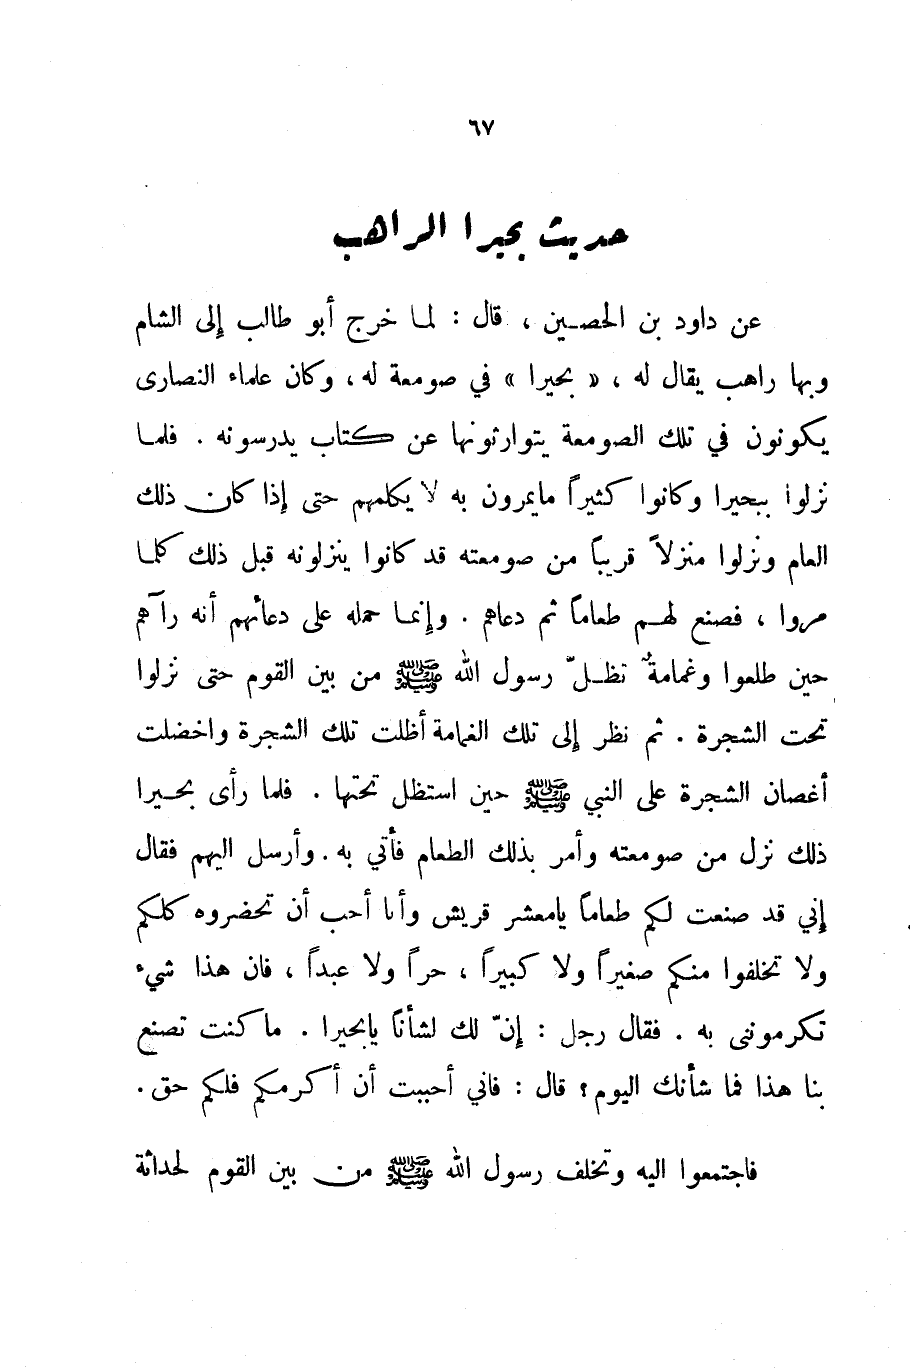 ٦٧
حديث بحيرا الراهب
عن داود بن الحصين ، قال : لما خرج أبو طالب إلى الشام
وبها راهب يقال له ، « بحيرا » في صومعة له ، وكان علماء النصارى
يكونون في تلك الصومعة يتوارثونها عن كتاب يدرسونه . فلما
نزلوا ببحيرا وكانوا كثيراً مايمرون به لا يكلمهم حتى إذا كان ذلك
العام ونزلوا منزلاً قريباً من صومعته قد كانوا ينزلونه قبل ذلك كلما
مروا ، فصنع لهم طعاماً ثم دعاهم . وإنما حمله على دعائهم أنه رآهم
حين طلعوا وغمامةٌ تظلّ رسول الله ﷺ من بين القوم حتى نزلوا
تحت الشجرة . ثم نظر إلى تلك الغمامة أظلت تلك الشجرة واخضلت
أغصان الشجرة على النبي ﷺ حين استظل تحتها . فلما رأى بحيرا
ذلك نزل من صومعته وأمر بذلك الطعام فأتي به . وأرسل اليهم فقال
إني قد صنعت لكم طعاماً يامعشر قريش وأنا أحب أن تحضروه كلكم
ولا تخلفوا منكم صغيراً ولا كبيراً ، حراً ولا عبداً ، فان هذا شيء
تكرموني به . فقال رجل : إنّ لك لشأناً يابحيرا . ما كنت تصنع
بنا هذا فما شأنك اليوم ؟ قال : فاني أحببت أن أكرمكم فلكم حق .
فاجتمعوا اليه وتخلف رسول الله ﷺ من بين القوم لحداثة